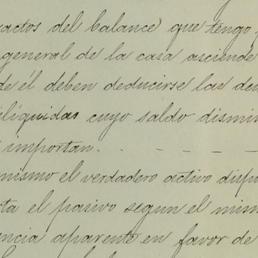 actos del balance que tengo
general de la casa asciende
de él deben deducirse las deu
ilíquidas cuyo saldo dismin
importan. . - - - -
mismo el verdadero activo disp
ta el pasivo segun el mism
encia aparente en favor de